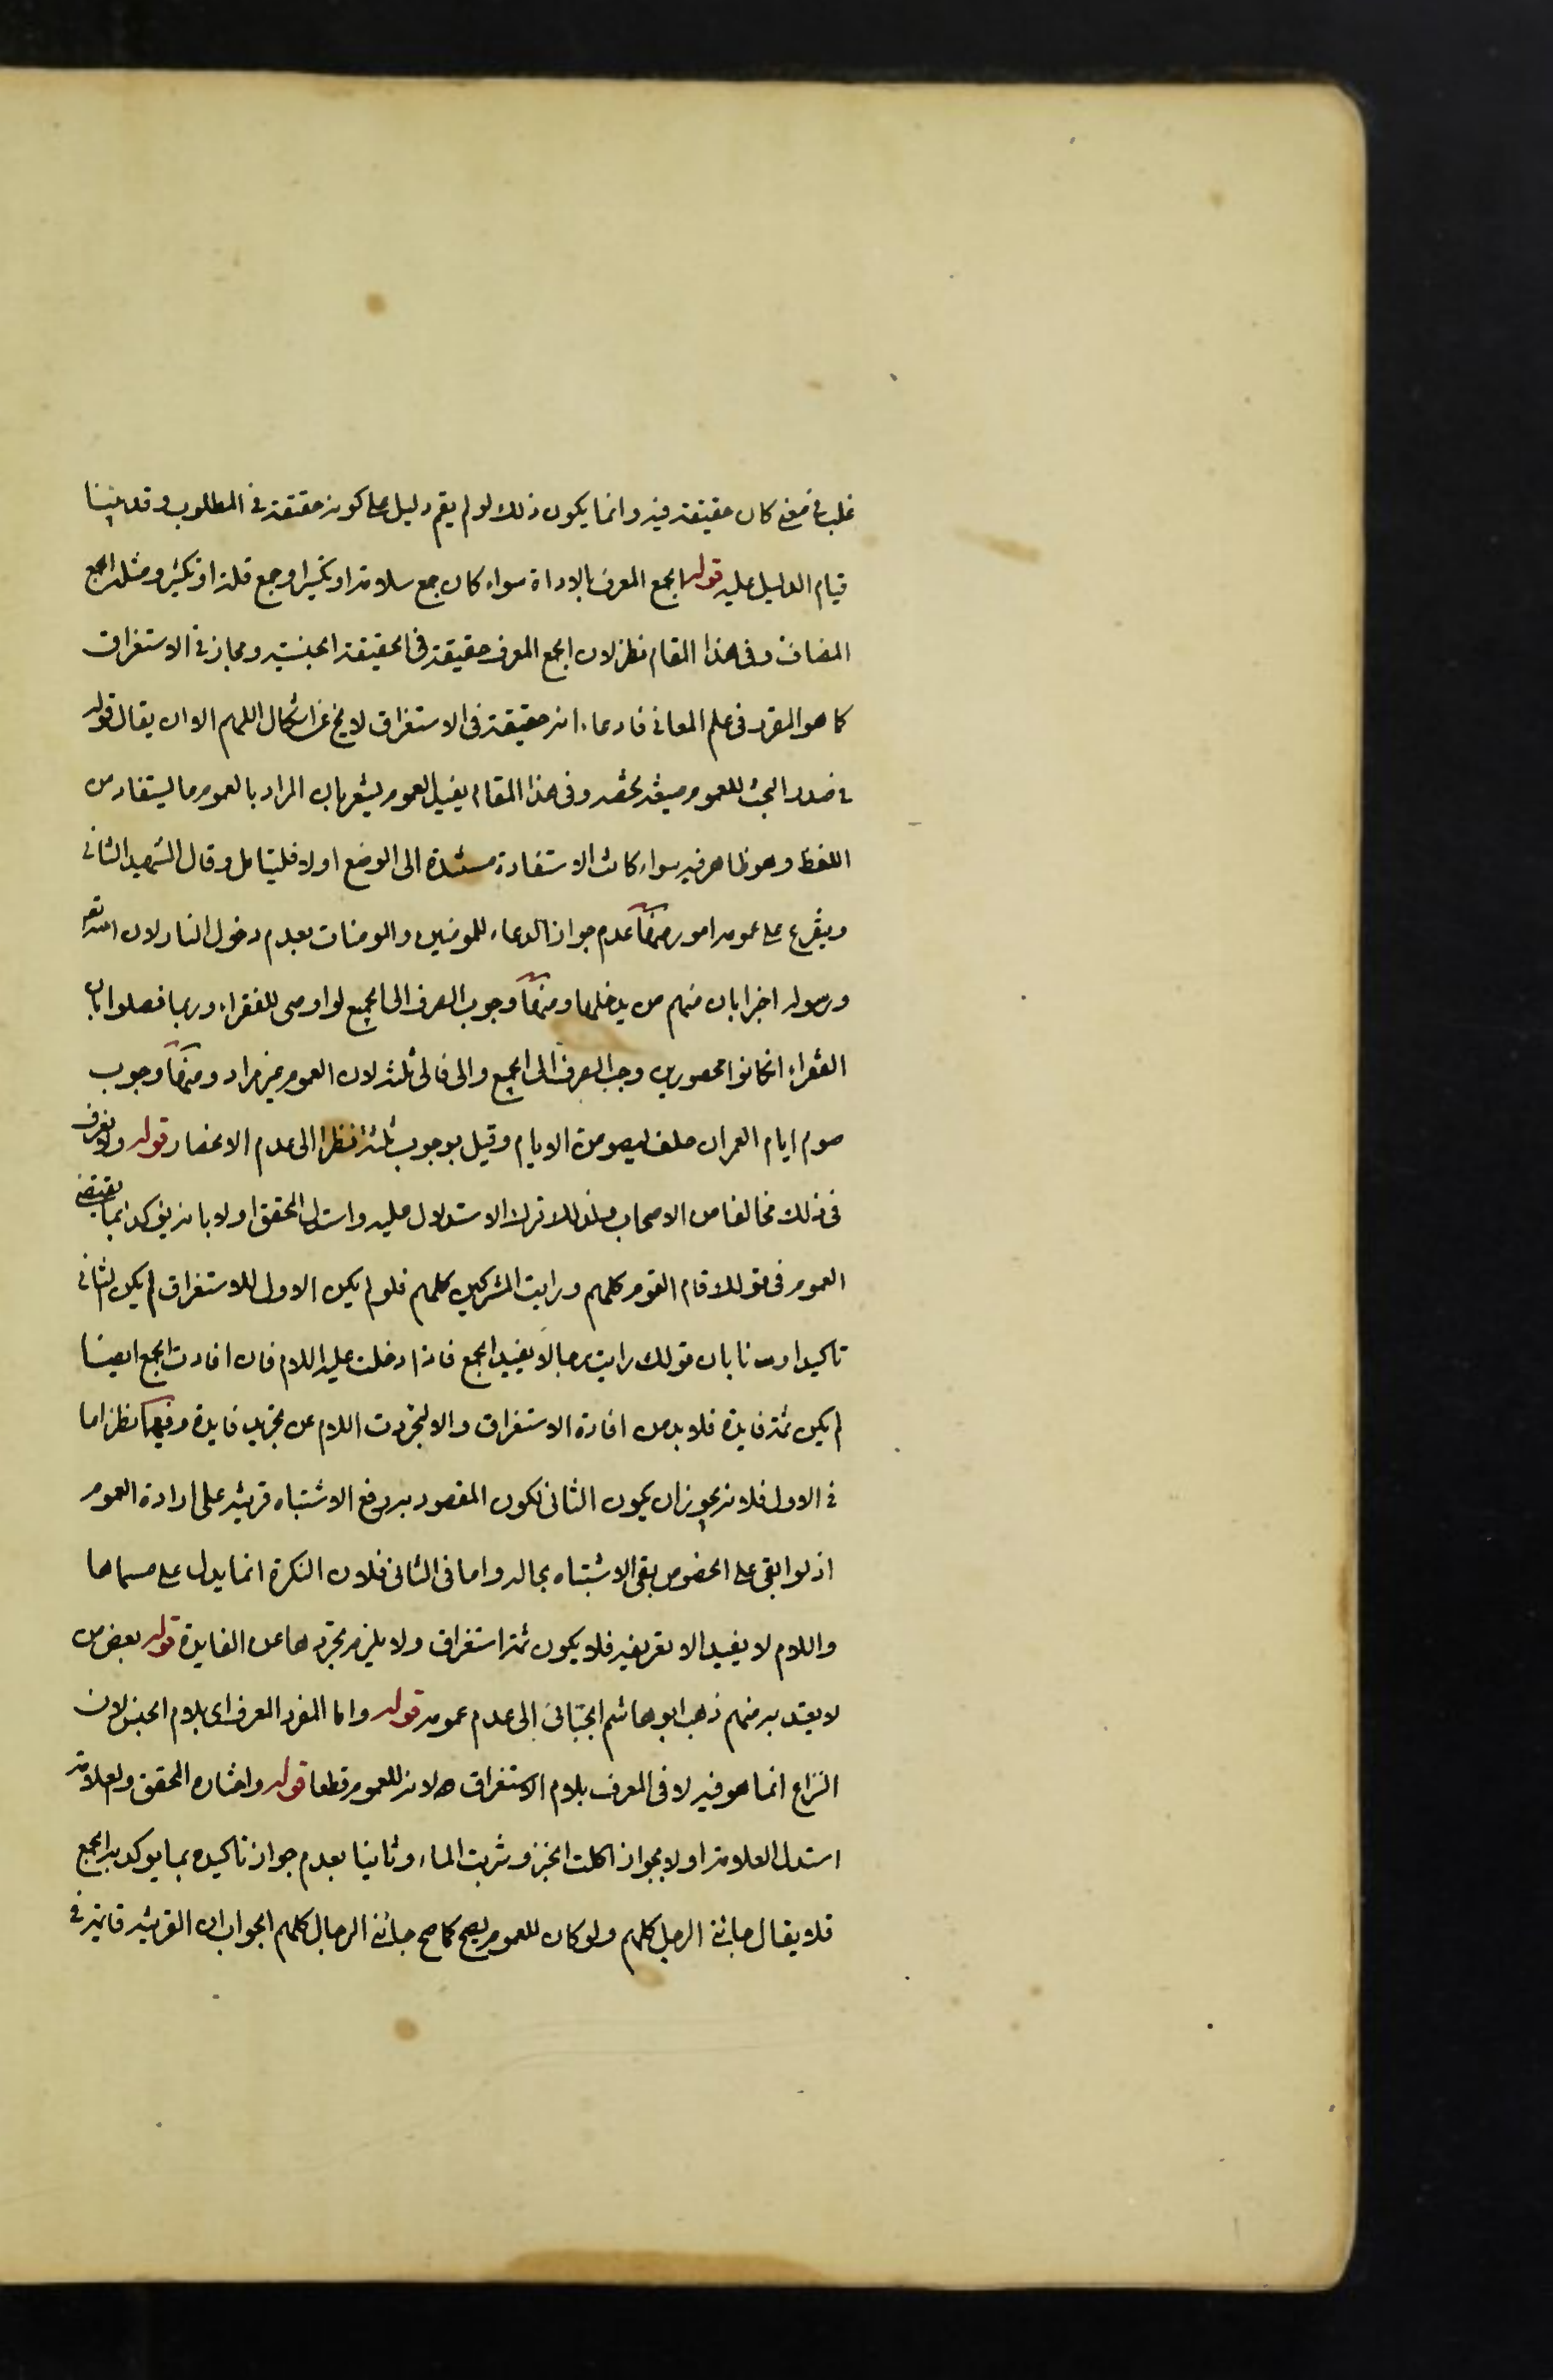 غلب في معنى كان حقيقة فيه وانما يكون ذلك لو لم يقم دليل على كونه حقيقة في المطلوب وقد بينا
قيام الدليل عليه قوله الجمع المعرف بالاداة سواء كان جمع سلامة او تكسير او جمع قلة او تكثير ومثله الجمع
المضاف وفي هذا المقام نظر لان الجمع المعرف حقيقة في الحقيقة الجنسية ومجاز في الاستغراق
كما هو المقرر في علم المعاني فادعاء انه حقيقة في الاستغراق لا يخ عن اشكال اللهم الا ان يقال قوله
في صدر البحث للعموم صيغة تخصه وفي هذا المقام يفيد العموم يشعر بان المراد بالعموم ما يستفاد من
اللفظ وهو ظاهر فيه سواء كانت الاستفادة مستندة الى الوضع او لا فليتامل وقال الشهيد الثاني
ويتفرع على عمومه امور منها عدم جواز الدعاء للمومنين والمومنات بعدم دخول النار لان الله تعه
ورسوله اخبرا بان منهم من يدخلها ومنها وجوب الصرف الى الجميع لو اوصى للفقراء وربما فصلوا بان
الفقراء ان كانوا محصورين وجب الصرف الى الجميع والى فالى ثلثة لان العموم غير مراد ومنها وجوب
صوم ايام العمر ان حلف ليصومن الايام وقيل بوجوب ثلثة نظرا الى عدم الانحصار قوله ولا نعرف
في ذلك مخالفا من الاصحاب ولذلك ترك الاستدلال عليه واستدل المحقق اولا بانه يؤكد بما يقتضي
العموم في قولك قام القوم كلهم ورايت المشركين كلهم فلو لم يكن الاول للاستغراق لم يكن الثاني
تاكيدا وثانيا بان قولك رايت رجالا يفيد الجمع فاذا دخلت عليه اللام فان افادت الجمع ايضا
لم يكن ثمة فايدة فلا بد من افادة الاستغراق والا لتجردت اللام عن فايدة وفيهما نظر اما
في الاول فلانه يجوز ان يكون الثاني لكون المقصود به رفع الاشتباه قرينة على ارادة العموم
اذ لو ابقى على الخصوص بقي الاشتباه بحاله واما في الثاني فلان النكرة انما يدل على مسماها
واللام لا يفيد الا تعريفه فلا يكون ثمة استغراق ولا يلزم تجردها عن الفايدة قوله بعض من
لا يعتد به منهم ذهب ابو هاشم الجبائي الى عدم عمومه قوله واما المفرد المعرف اي بلام الجنس لان
النزاع انما هو فيه لا في المعرف بلام الاستغراق لانه للعموم قطعا قوله واختاره المحقق والعلامة
استدل العلامة اولا بجواز اكلت الخبز وشربت الماء وثانيا بعدم جواز تاكيده بما يوكد به الجمع
فلا يقال جائني الرجل كلهم ولو كان للعموم لصح كما صح جائني الرجال كلهم الجواب ان القرينة قائمة في